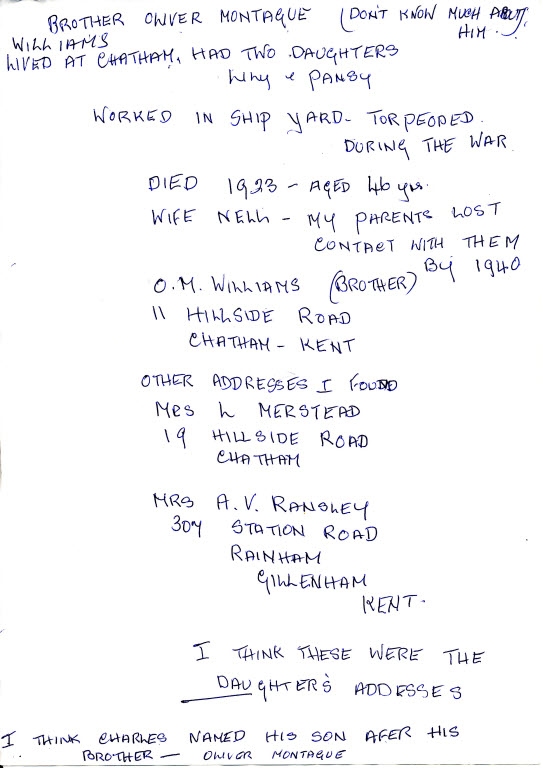 BROTHER OLIVER MONTAGUE (DON'T KNOW MUCH ABOUT
WILLIAMS HIM.)
LIVED AT CHATHAM, HAD TWO DAUGHTERS
LILLY & PANSY
WORKED IN SHIP YARD - TORPEDED
DURING THE WAR
DIED 1923 - AGED 46 yrs.
WIFE NELL - MY PARENTS LOST
CONTACT WITH THEM
BY 1940
O.M. WILLIAMS (BROTHER)
11 HILLSIDE ROAD
CHATHAM - KENT
OTHER ADDRESSES I FOUND
MRS L MERSTEAD
19 HILLSIDE ROAD
CHATHAM
MRS A.V. RANSLEY
307 STATION ROAD
RAINHAM
GILLENHAM
KENT.
I THINK THESE WERE THE
DAUGHTER'S ADDRESSES
I THINK CHARLES NAMED HIS SON AFER HIS
BROTHER - OLIVER MONTAGUE